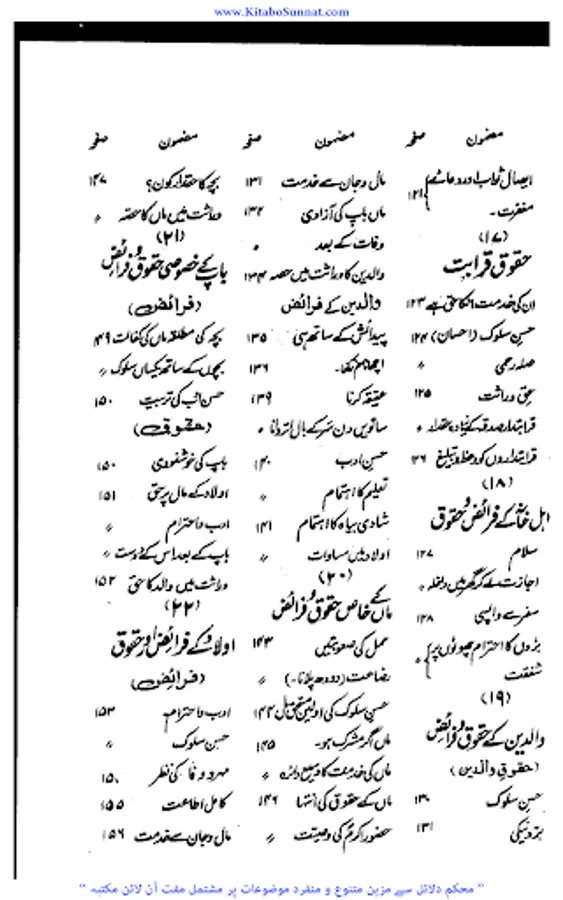 www.KitaboSunnat.com
مضمون صفحہ
ایصال ثواب اور دعائے ۱۲۱
مغفرت۔
(۱۷)
حقوق قرابت
ان کی خدمت انکا حق ہے ۱۲۳
حسن سلوک (احسان) ۱۲۴
صلہ رحمی 〃
حق وراثت ۱۲۵
قرابتدار صدقہ کے زیادہ حقدار 〃
قرابتداروں کو وعظ و تبلیغ ۱۲۶
(۱۸)
اہل خانہ کے فرائض و حقوق
سلام ۱۲۷
اجازت لے کر گھر میں داخلہ 〃
سفر سے واپسی ۱۲۸
بڑوں کا احترام چھوٹوں پر 〃
شفقت
(۱۹)
والدین کے حقوق و فرائض
(حقوق والدین)
حسن سلوک ۱۳۰
بر و نیکی ۱۳۱
مضمون صفحہ
مال و جان سے خدمت ۱۳۱
ماں باپ کی آزادی ۱۳۲
وفات کے بعد 〃
والدین کا وراثت میں حصہ ۱۳۴
والدین کے فرائض
پیدائش کے ساتھ ہی ۱۳۵
اچھا نام رکھنا۔ ۱۳۶
عقیقہ کرنا ۱۳۹
ساتویں دن سر کے بال اتروانا 〃
حسن ادب ۱۴۰
تعلیم کا اہتمام 〃
شادی بیاہ کا اہتمام ۱۴۱
اولاد میں مساوات 〃
(۲۰)
ماں کے خاص حقوق و فرائض
حمل کی صعوبتیں ۱۴۳
رضاعت (دودھ پلانا۔) 〃
حسن سلوک کی اولین مستحق ماں ۱۴۴
ماں اگر مشرک ہو۔ ۱۴۵
ماں کی خدمت کا وسیع دائرہ 〃
ماں کے حقوق کی انتہا ۱۴۶
حضور اکرمؐ کی وصیت 〃
مضمون صفحہ
بچہ کا حقدار کون؟ ۱۴۷
وراثت میں ماں کا حصہ 〃
(۲۱)
باپ کے خصوصی حقوق و فرائض
(فرائض)
بچہ کی مطلقہ ماں کی کفالت ۱۴۹
بچوں کے ساتھ یکساں سلوک 〃
حسن ادب کی تربیت ۱۵۰
(حقوق)
باپ کی خوشنودی ۱۵۰
اولاد کے مال پر حق ۱۵۱
ادب و احترام 〃
باپ کے بعد اس کے دوست 〃
وراثت میں والد کا حق ۱۵۲
(۲۲)
اولاد کے فرائض اور حقوق
(فرائض)
ادب و احترام ۱۵۳
حسن سلوک 〃
مہر و وفا کی نظر
کامل اطاعت ۱۵۵
مال و جان سے خدمت ۱۵۶
" محکم دلائل سے مزین متنوع و منفرد موضوعات پر مشتمل مفت آن لائن مکتبہ "